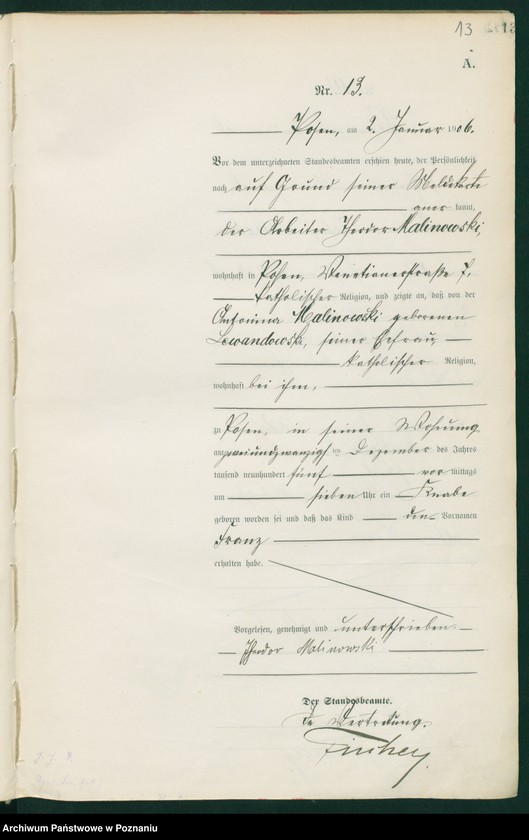 13
A.
Nr. 13.
Posen, am 2. Januar 1906.
Vor dem unterzeichneten Standesbeamten erschien heute, der Persönlichkeit
nach auf Grund seiner Meldekarte
aner kannt,
der Arbeiter Theodor Malinowski,
wohnhaft in Posen, Venetianerstraße 7,
katholischer Religion, und zeigte an, daß von der
Antonina Malinowski geborenen
Lewandowski, seiner Ehefrau,
katholischer Religion,
wohnhaft bei ihm,
zu Posen, in seiner Wohnung
am zweiundzwanzigsten Dezember des Jahres
tausend neunhundert fünf vor mittags
um sieben Uhr ein Knabe
geboren worden sei und daß das Kind den Vornamen
Franz
erhalten habe.
Vorgelesen, genehmigt und unterschrieben
Theodor Malinowski
Der Standesbeamte.
In Vertretung.
Archiwum Państwowe w Poznaniu